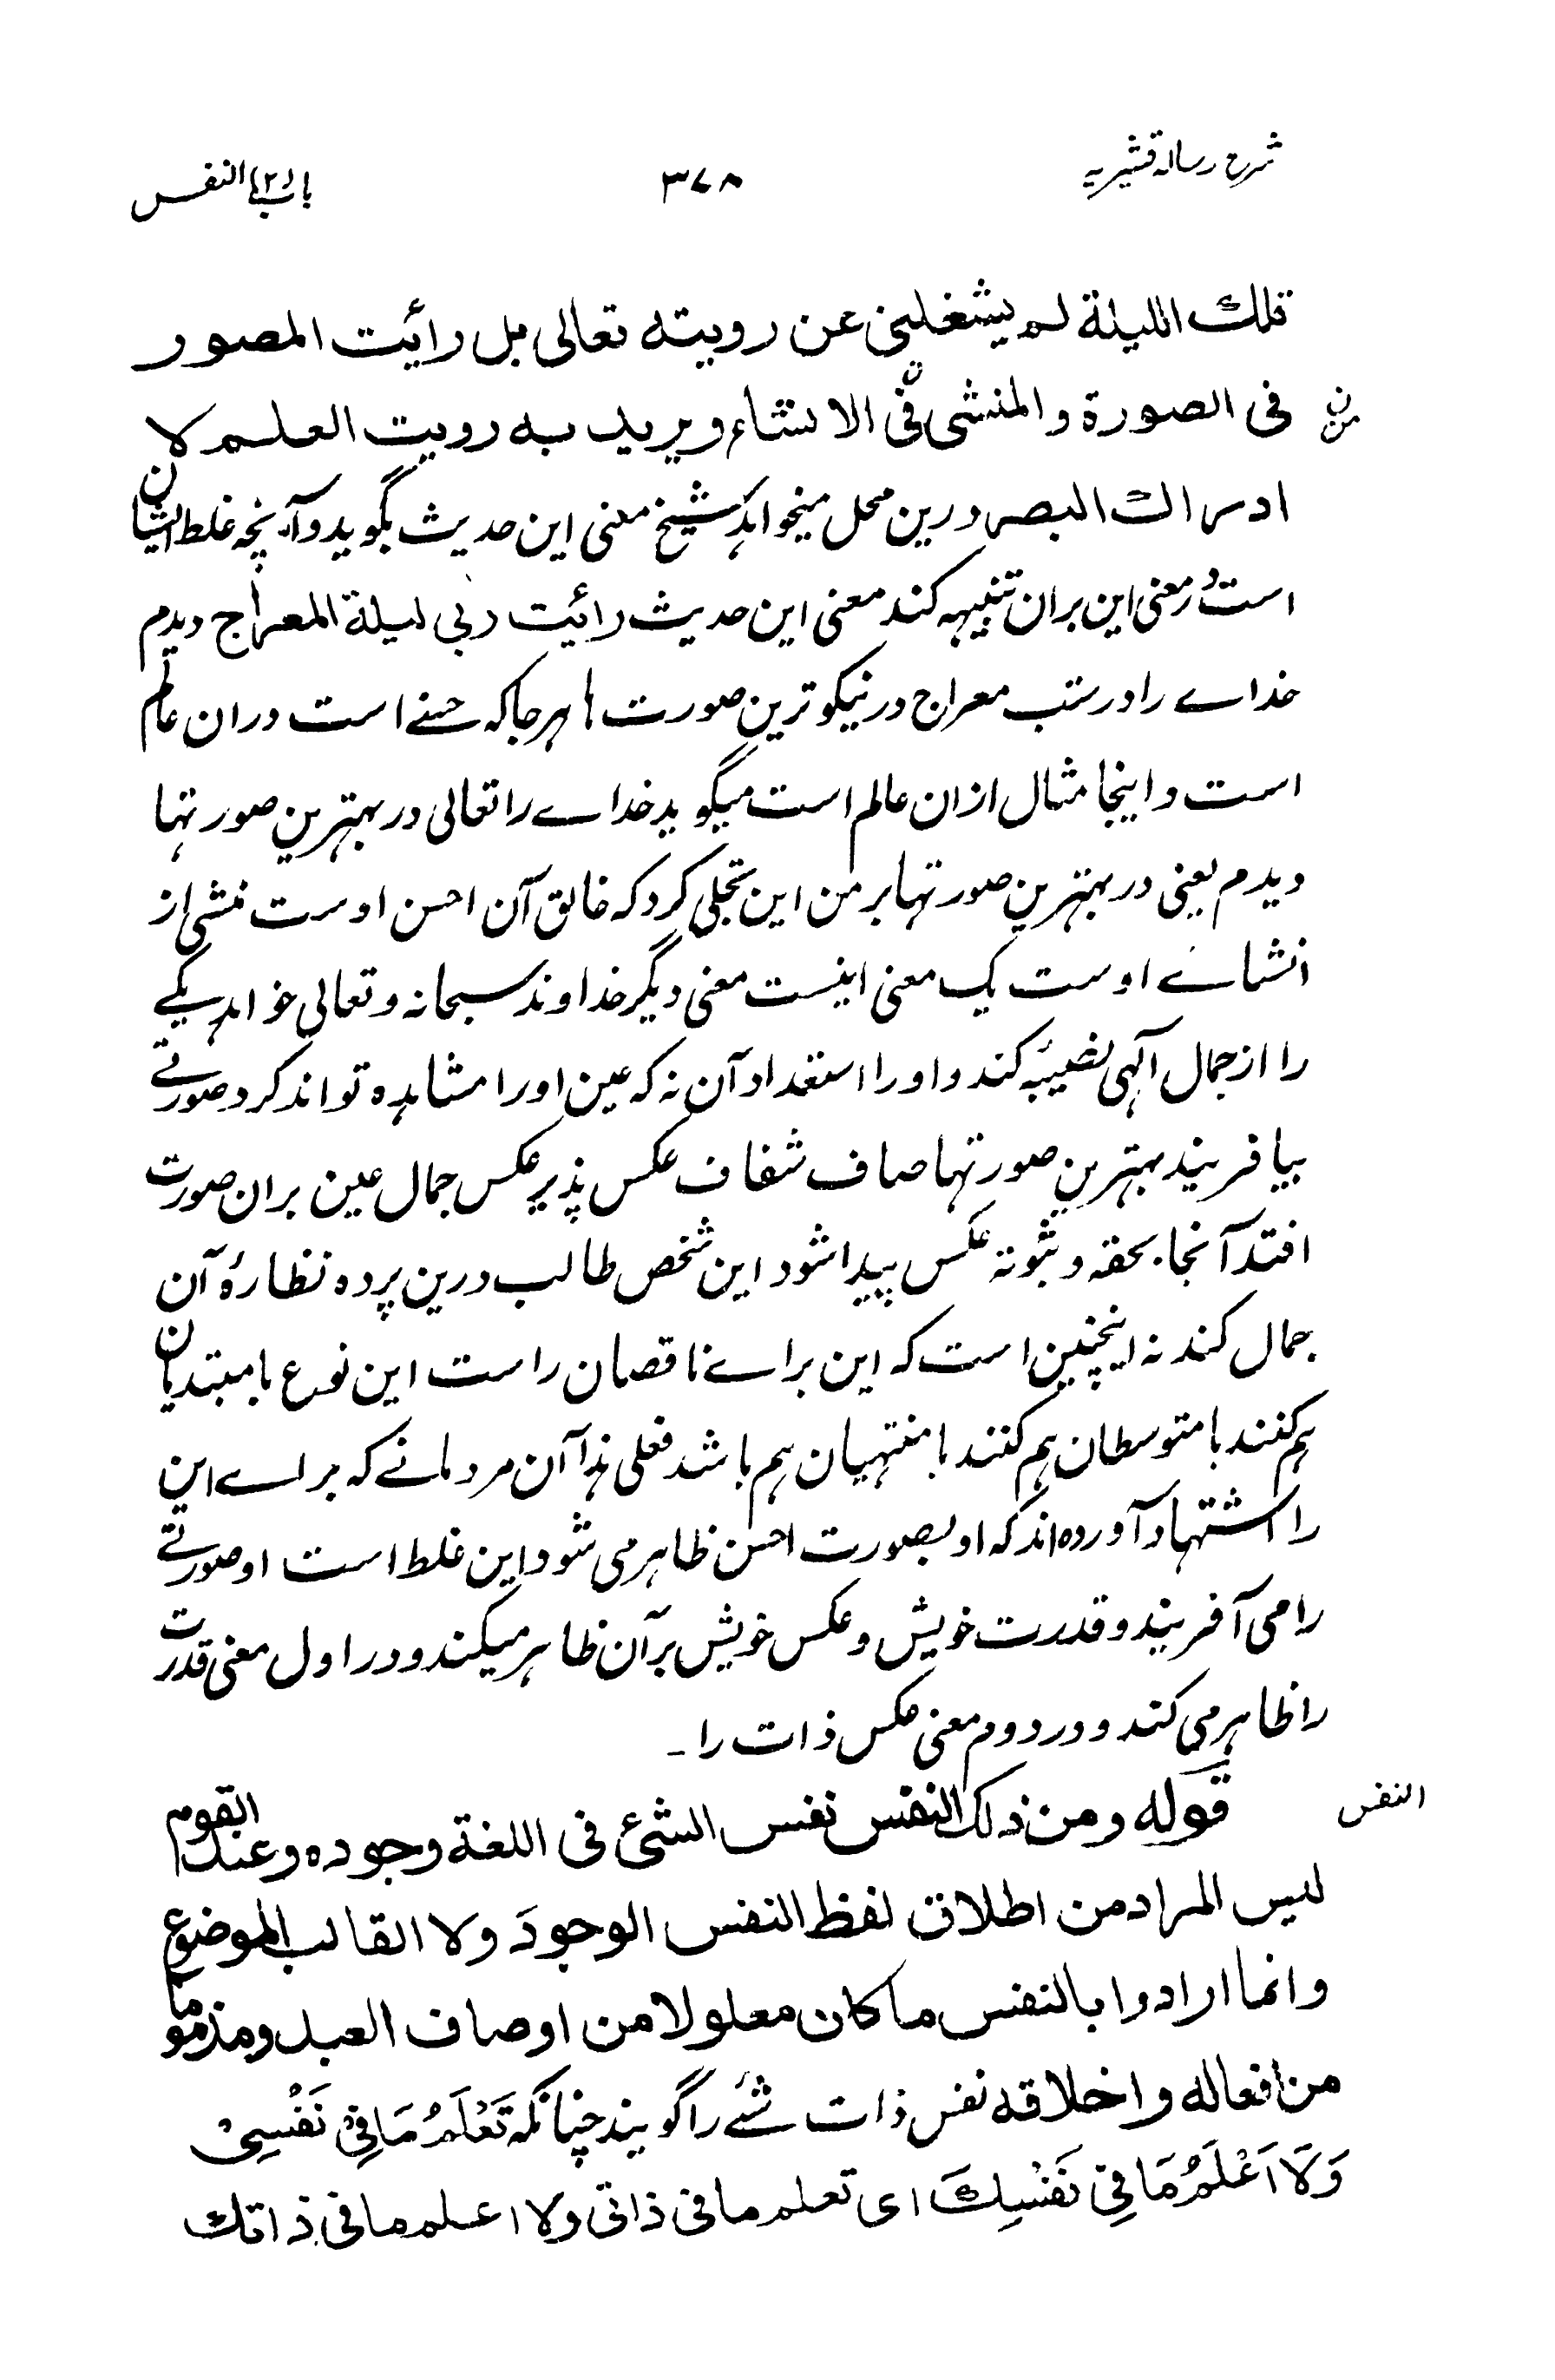 شرح رسالہ قشیریہ
۳۷۸
باب (۲) النفس
تلك الليلة لم يشغلنى عن رويته تعالى بل رائيت المصور
فى الصورة والمنشى فى الانشاء ويريد به رويت العلم لا
ن
من
ادراك البصر درین محل میخواہد کہ شیخ معنی این حدیث بگوید و آنچہ غلط ایشان
است در معنی این بران تنبیہہ کند معنی این حدیث رائيت ربى ليلة المعراج دیدم
خداے را در شب معراج در نیکو ترین صورت ہا ہر جا کہ حسنے است دران عالم
است و اینجا مثال ازان عالم است میگوید خداے را تعالی در بہترین صورتہا
دیدم یعنی در بہترین صورتہا بر من این تجلی کرد کہ خالق آن احسن اوست منشی از
انشاے اوست یک معنی اینست معنی دیگر خداوند سبحانہ و تعالی خواہد یکے
را از جمال آلہی نصیبہ کند و اورا استعداد آن نہ کہ عین اورا مشاہدہ تواند کرد صورتے
بیافریند بہترین صورتہا صاف شفاف عکس پذیر عکس جمال عین بران صورت
افتد آنجا بحقہ و ثبوتہ عکس پیدا شود این شخص طالب درین پردہ نظارۂ آن
جمال کند نہ اینچنین است کہ این براے ناقصان راست این نوع با مبتدیان
ہم کنند با متوسطان ہم کنند با منتہیان ہم باشد فعلی ہذا آن مردمانے کہ براے این
را استشہاد آوردہ اند کہ او بصورت احسن ظاہر می شود این غلط است او صورتے
را می آفریند و قدرت خویش و عکس خویش بر آن ظاہر میکند و در اول معنی قدرت
را ظاہر می کند و در دوم معنی عکس ذات را۔
النفس
قوله ومن ذلك النفس نفس الشئ فى اللغة وجوده وعند القوم
ليس المراد من اطلاق لفظ النفس الوجود ولا القالب الموضوع
وانما ارادوا بالنفس ما كان معلولا من اوصاف العبد ومذموما
من افعاله واخلاقه نفس ذات شئے را گویند چنانکہ تَعْلَمُ مَا فِىْ نَفْسِىْ
وَلَا اَعْلَمُ مَا فِىْ نَفْسِكَ اى تعلم ما فى ذاتى ولا اعلم ما فى ذاتك